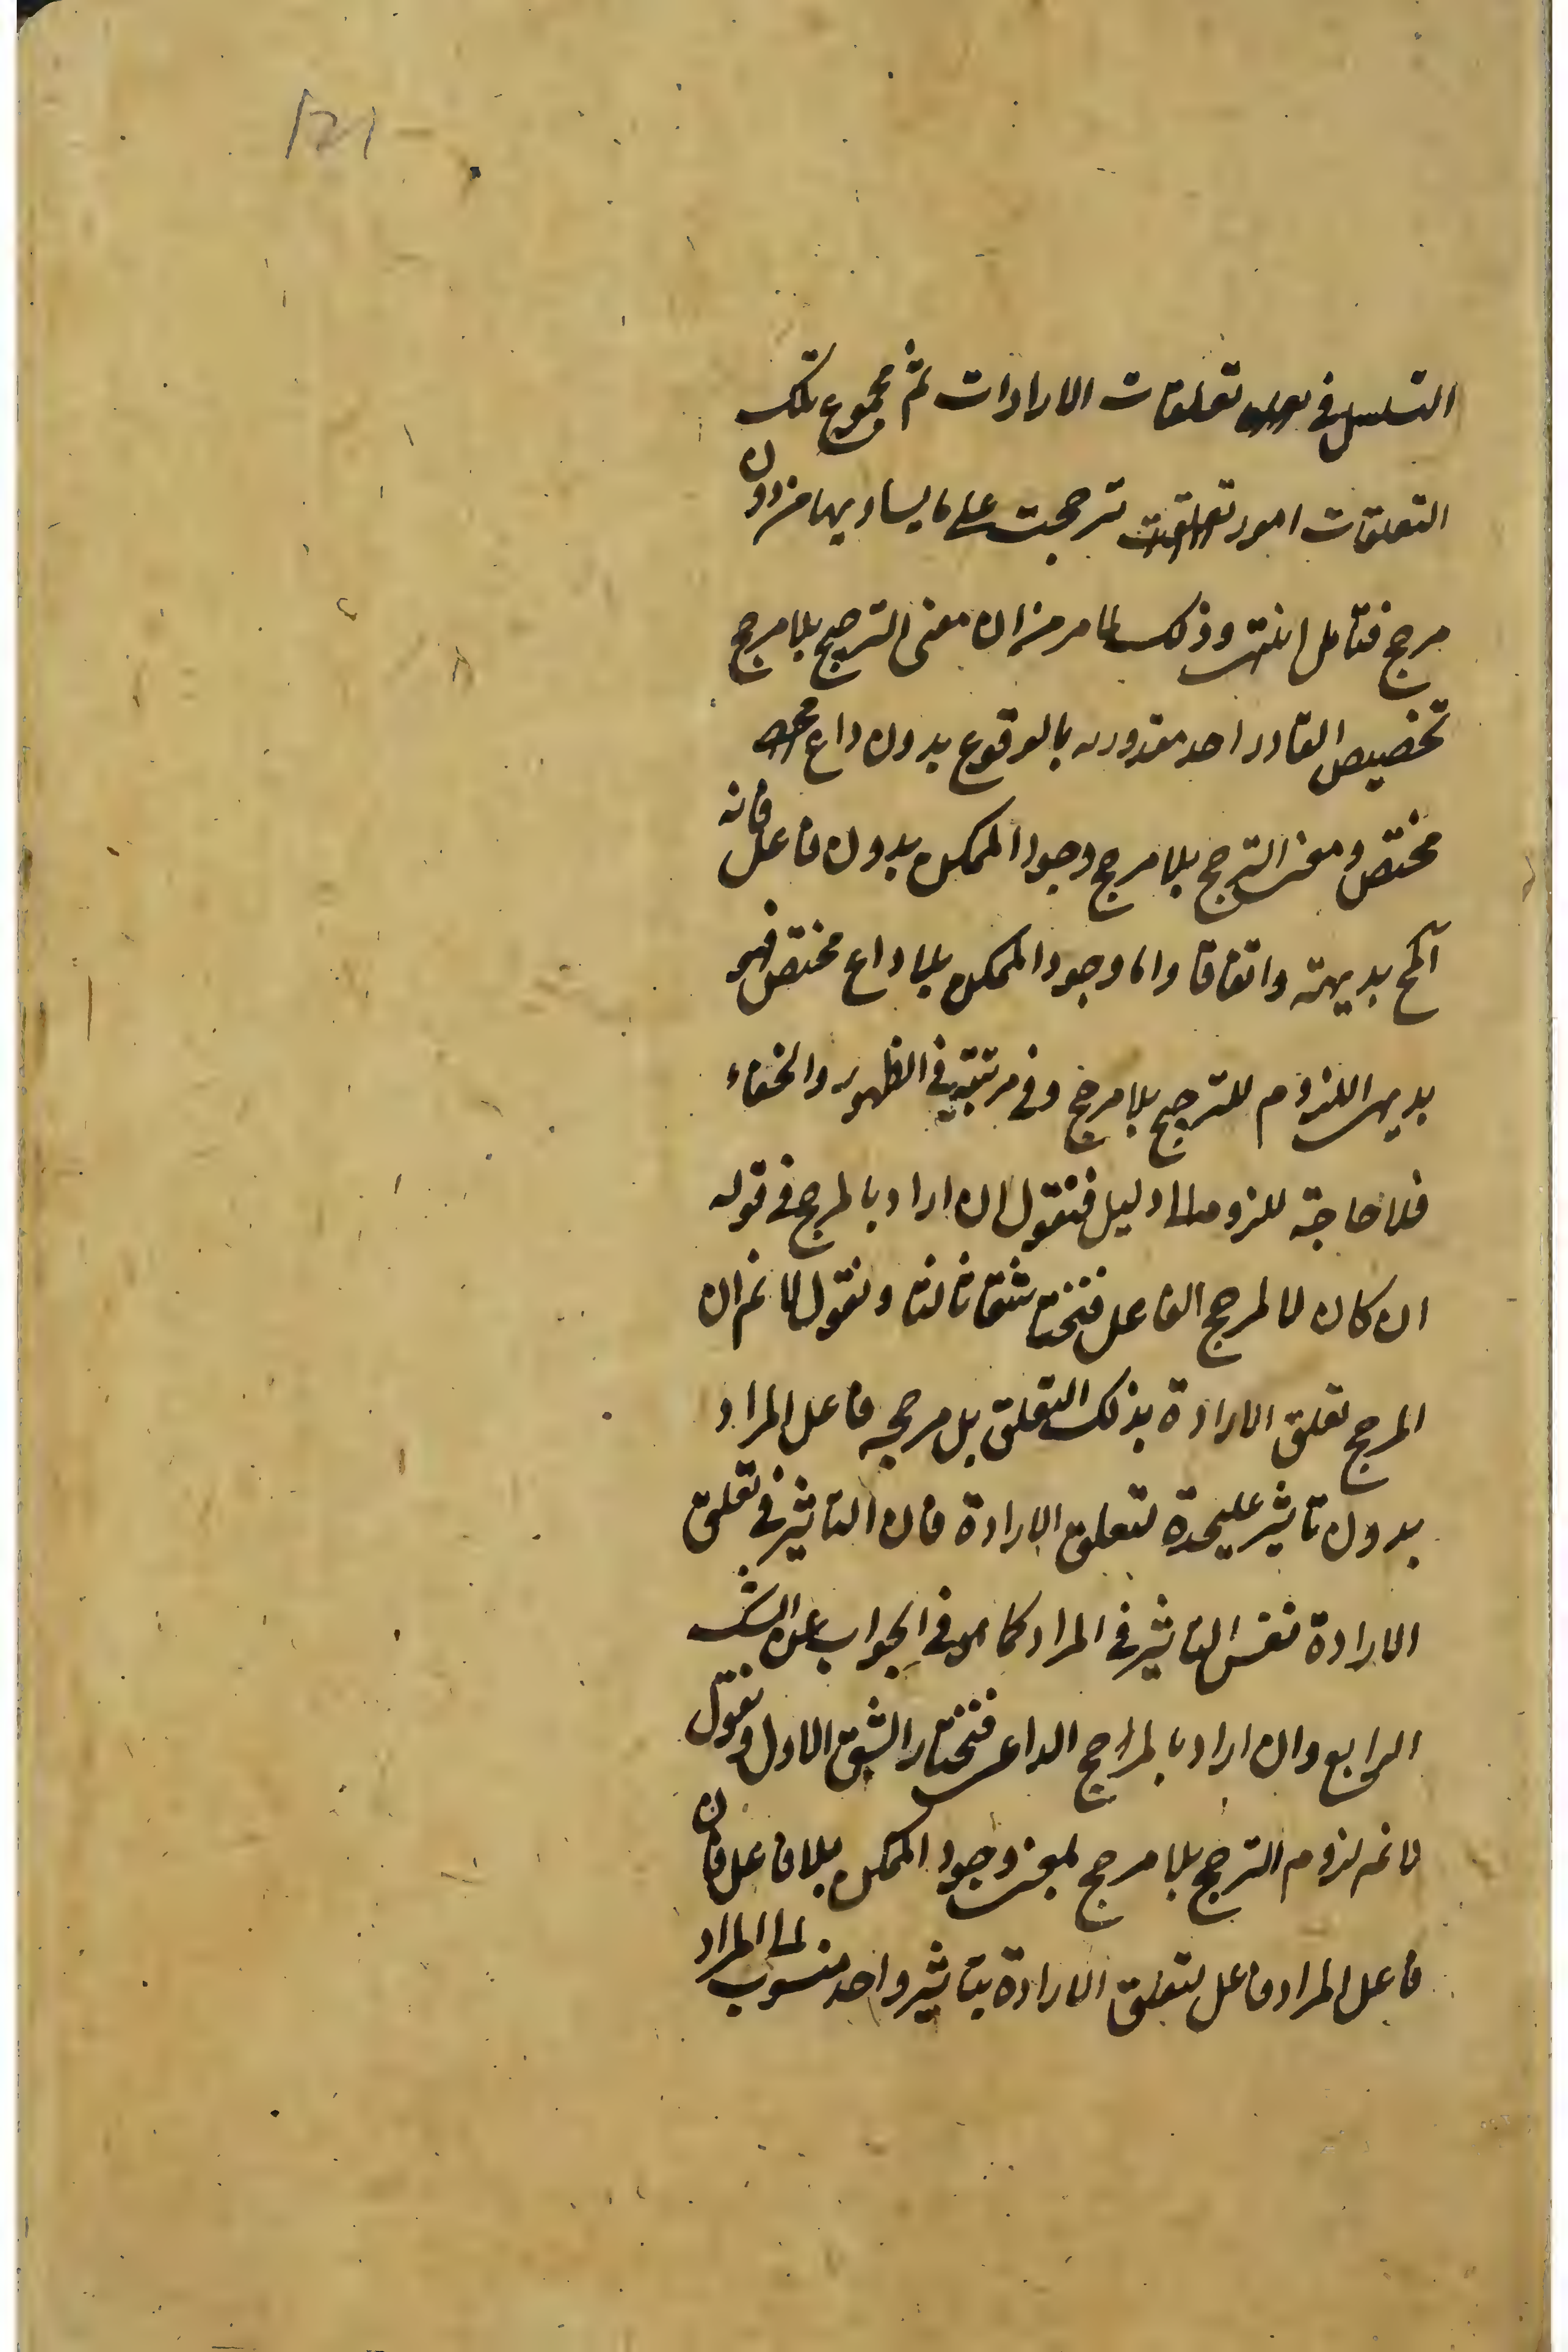 التسلسل في تعلقات الارادات ثم مجموع تلك
التعلقات امور ترجحت على ما يساويها من دون
مرجح فتأمل انتهى وذلك لما مر من ان معنى الترجيح بلا مرجح
تخصيص القادر احد مقدوريه بالوقوع بدون داع
مختص ومعنى الترجح بلا مرجح وجود الممكن بدون فاعل فانه
المح بديهة واتفاقا واما وجود الممكن بلا داع مختص فهو
بديهي اللزوم للترجيح بلا مرجح وفي مرتبته في الظهور والخفاء
فلا حاجة للزومه الى دليل فنقول ان اراد بالمرجح في قوله
ان كان لا لمرجح الفاعل فنختار شقا ثالثا ونقول لا نم ان
المرجح تعلق الارادة بذلك التعلق بل مرجحه فاعل المراد
بدون تاثير عليحدة لتعلق الارادة فان التاثير في تعلق
الارادة نفس التاثير في المراد كما مر في الجواب عن الشك
الرابع وان اراد بالمرجح الداعي فنختار الشق الاول ونقول
لا نم لزوم الترجح بلا مرجح بمعنى وجود الممكن بلا فاعل فان
فاعل المراد فاعل لتعلق الارادة بتاثير واحد منسوب الى المراد